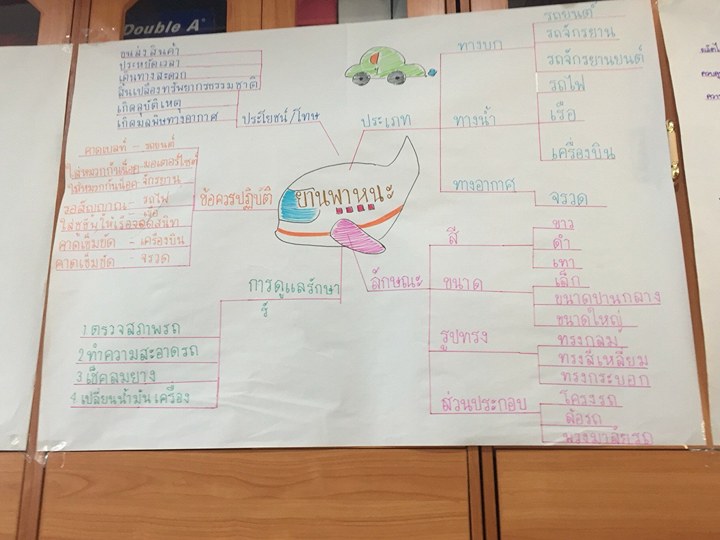 Double A
ขนส่งสินค้า
ประหยัดเวลา
เดินทางสะดวก
สิ้นเปลืองทรัพยากรธรรมชาติ
เกิดอุบัติเหตุ
เกิดมลพิษทางอากาศ
ประโยชน์/โทษ
ประเภท
ทางบก
รถยนต์
รถจักรยาน
รถจักรยานยนต์
รถไฟ
ทางน้ำ
เรือ
เครื่องบิน
ทางอากาศ
จรวด
ยานพาหนะ
ข้อควรปฏิบัติ
คาดเบลท์ - รถยนต์
ใส่หมวกกันน็อค - มอเตอร์ไซค์
ใส่หมวกกันน็อค - จักรยาน
รอสัญญาณ - รถไฟ
ใส่ชูชีพ
คาดเข็มขัด - เครื่องบิน
คาดเข็มขัด - จรวด
การดูแลรักษา
1 ตรวจสภาพรถ
2 ทำความสะอาดรถ
3 เช็คลมยาง
4 เปลี่ยนน้ำมันเครื่อง
ลักษณะ
สี
ขาว
ดำ
เทา
ขนาด
เล็ก
ขนาดปานกลาง
ขนาดใหญ่
รูปทรง
ทรงกลม
ทรงสี่เหลี่ยม
ทรงกระบอก
ส่วนประกอบ
โครงรถ
ล้อรถ